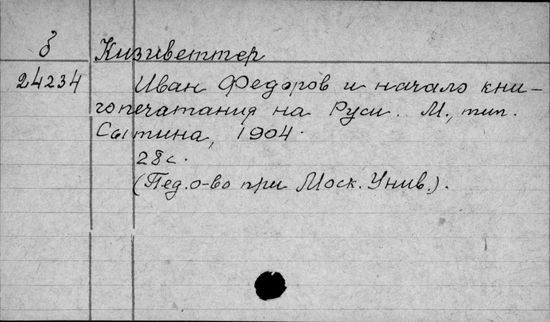 б Кизиветтер
24234 Иван Федоров и начало кни-
гопечатания на Руси. М., тип.
Сытина, 1904.
28 с.
(Пед. о-во при Моск. Унив.).